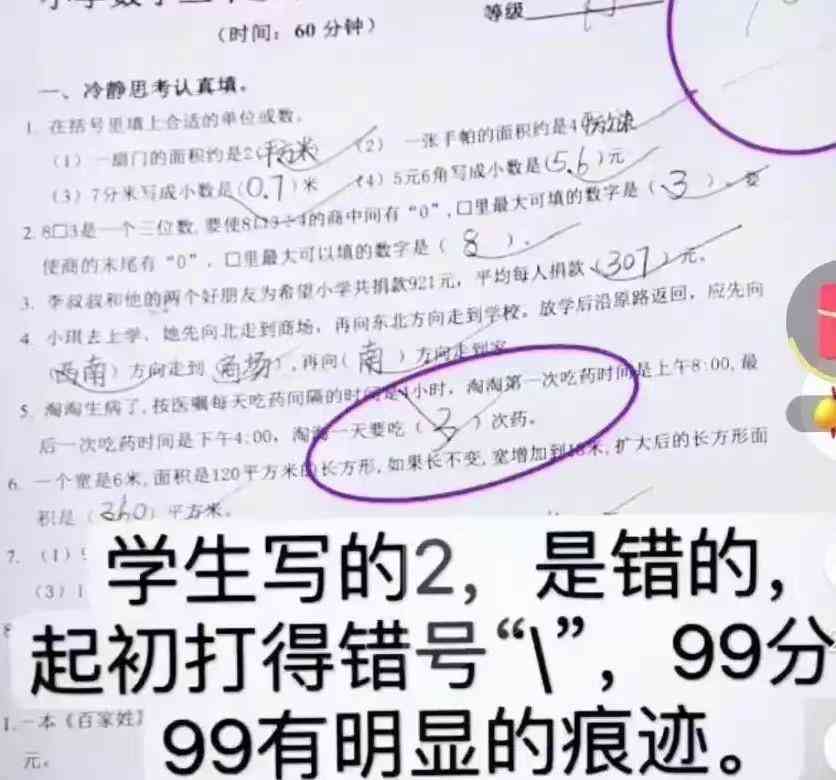 (时间：60 分钟)
等级
一、冷静思考认真填。
1. 在括号里填上合适的单位或数。
(1) 一扇门的面积约是2(平方米) (2) 一张手帕的面积约是4(平方分米)
(3) 7分米写成小数是(0.7)米 (4) 5元6角写成小数是(5.6)元
2. 8□3是一个三位数,要使8□3÷4的商中间有“0”,□里最大可填的数字是(3)、要
使商的末尾有“0”,□里最大可以填的数字是(8)。
3. 李叔叔和他的两个好朋友为希望小学共捐款921元，平均每人捐款(307)元。
4. 小琪去上学，她先向北走到商场，再向东北方向走到学校。放学后沿原路返回，应先向
(西南)方向走到(商场),再向(南)方向走到家
5. 淘淘生病了,按医嘱每天吃药间隔的时间是4小时，淘淘第一次吃药时间是上午8:00,最
后一次吃药时间是下午4:00，淘淘一天要吃(3)次药。
6. 一个宽是6米,面积是120平方米的长方形,如果长不变,宽增加到18米,扩大后的长方形面
积是(360)平方米。
7. (1)
(3) 1
学生写的2，是错的，
起初打得错号“\”，99分
99有明显的痕迹。
1. 一本《百家姓》
元。